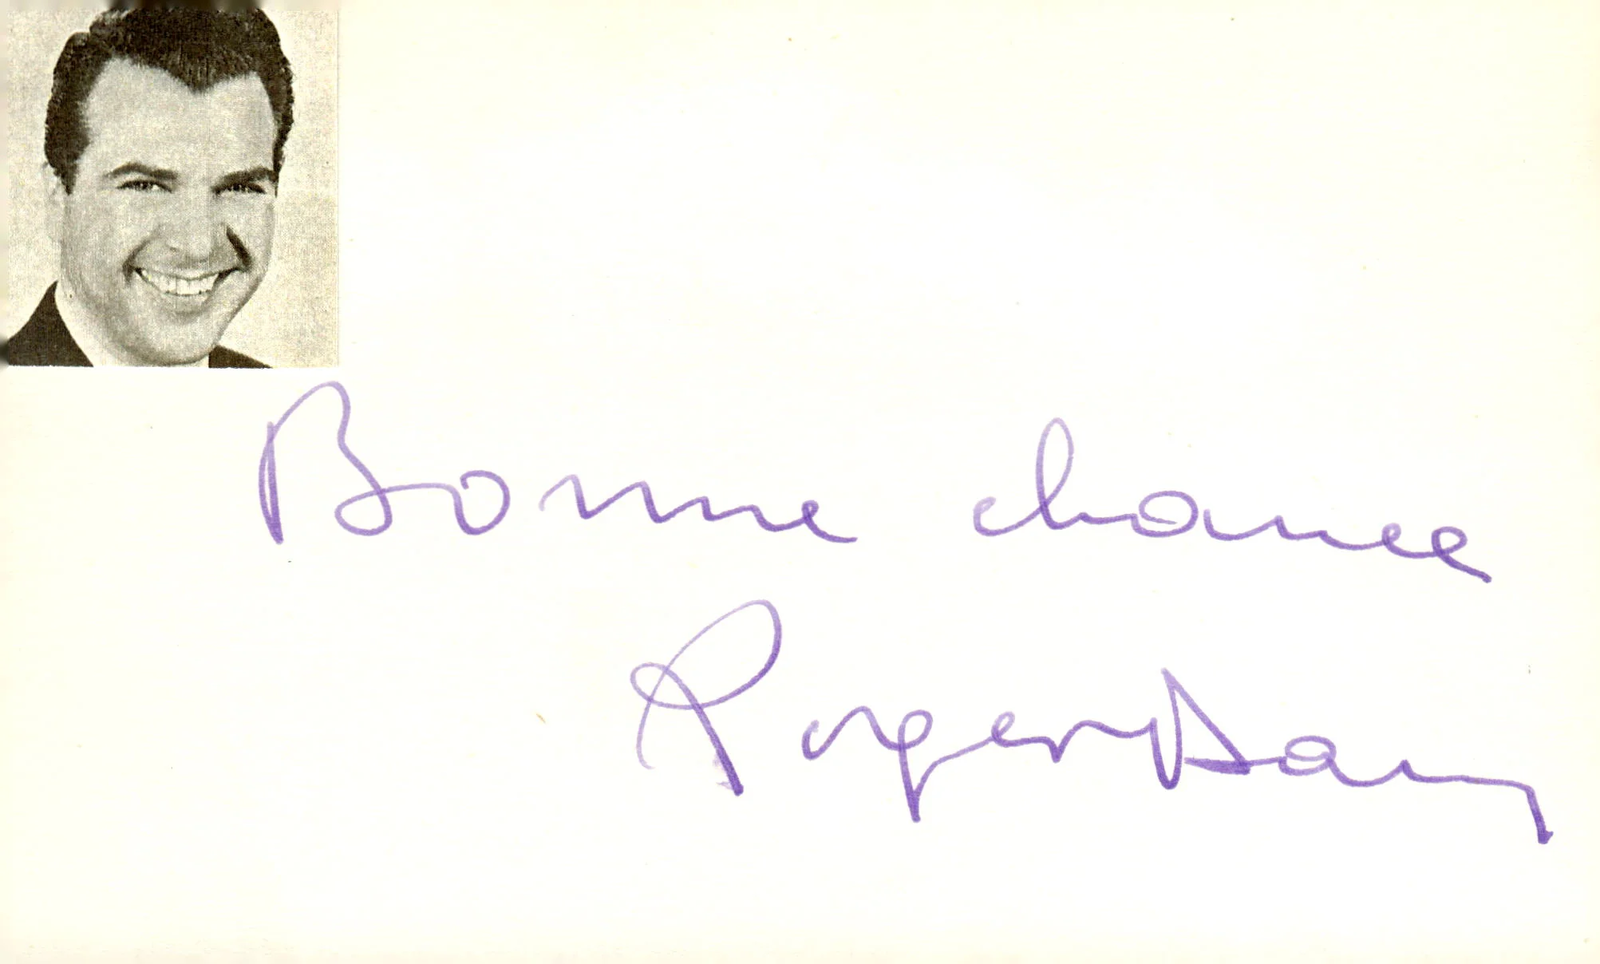 Bonne chance
Roger Dann